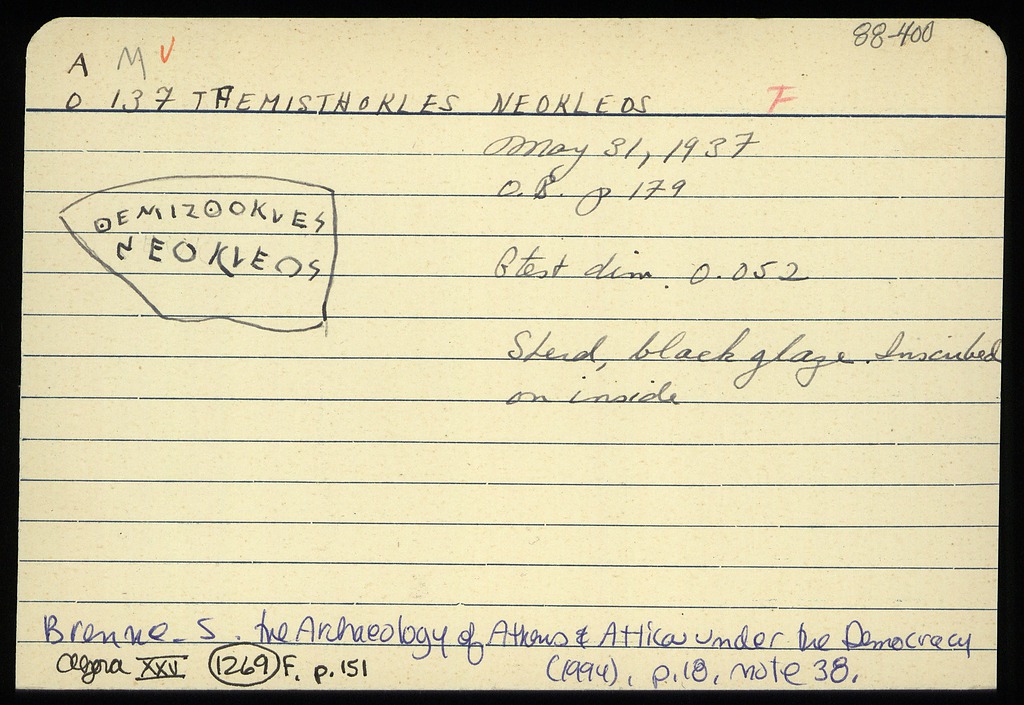 88-400
A M V
O 137 THEMISTHOKLES NEOKLEOS F
May 31, 1937
O.B. p 179
ΘEMIZΘOKVES
NEOKVEOS
Gtest dim. 0.052
Sherd, black glaze. Inscribed
on inside
Brenne-S. the Archaeology of Athens & Attica under the Democracy
(1994), p.18, note 38.
Agora XXV 1269 F. p.151